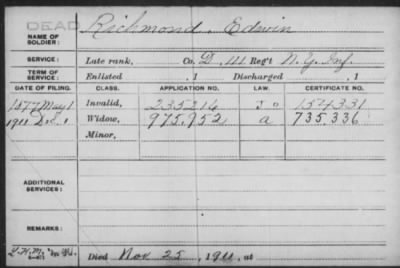 DEAD
NAME OF SOLDIER: Richmond, Edwin
SERVICE: Late rank, Co. D, 111 Reg't N.Y. Inf.
TERM OF SERVICE: Enlisted , 1 Discharged , 1
DATE OF FILING. CLASS. APPLICATION NO. LAW. CERTIFICATE NO.
1877 May 1 Invalid, 235216 154331
1911 Widow, 975.952 a 735.336
Minor,
ADDITIONAL SERVICES:
REMARKS:
Died Nov 25, 1911, at